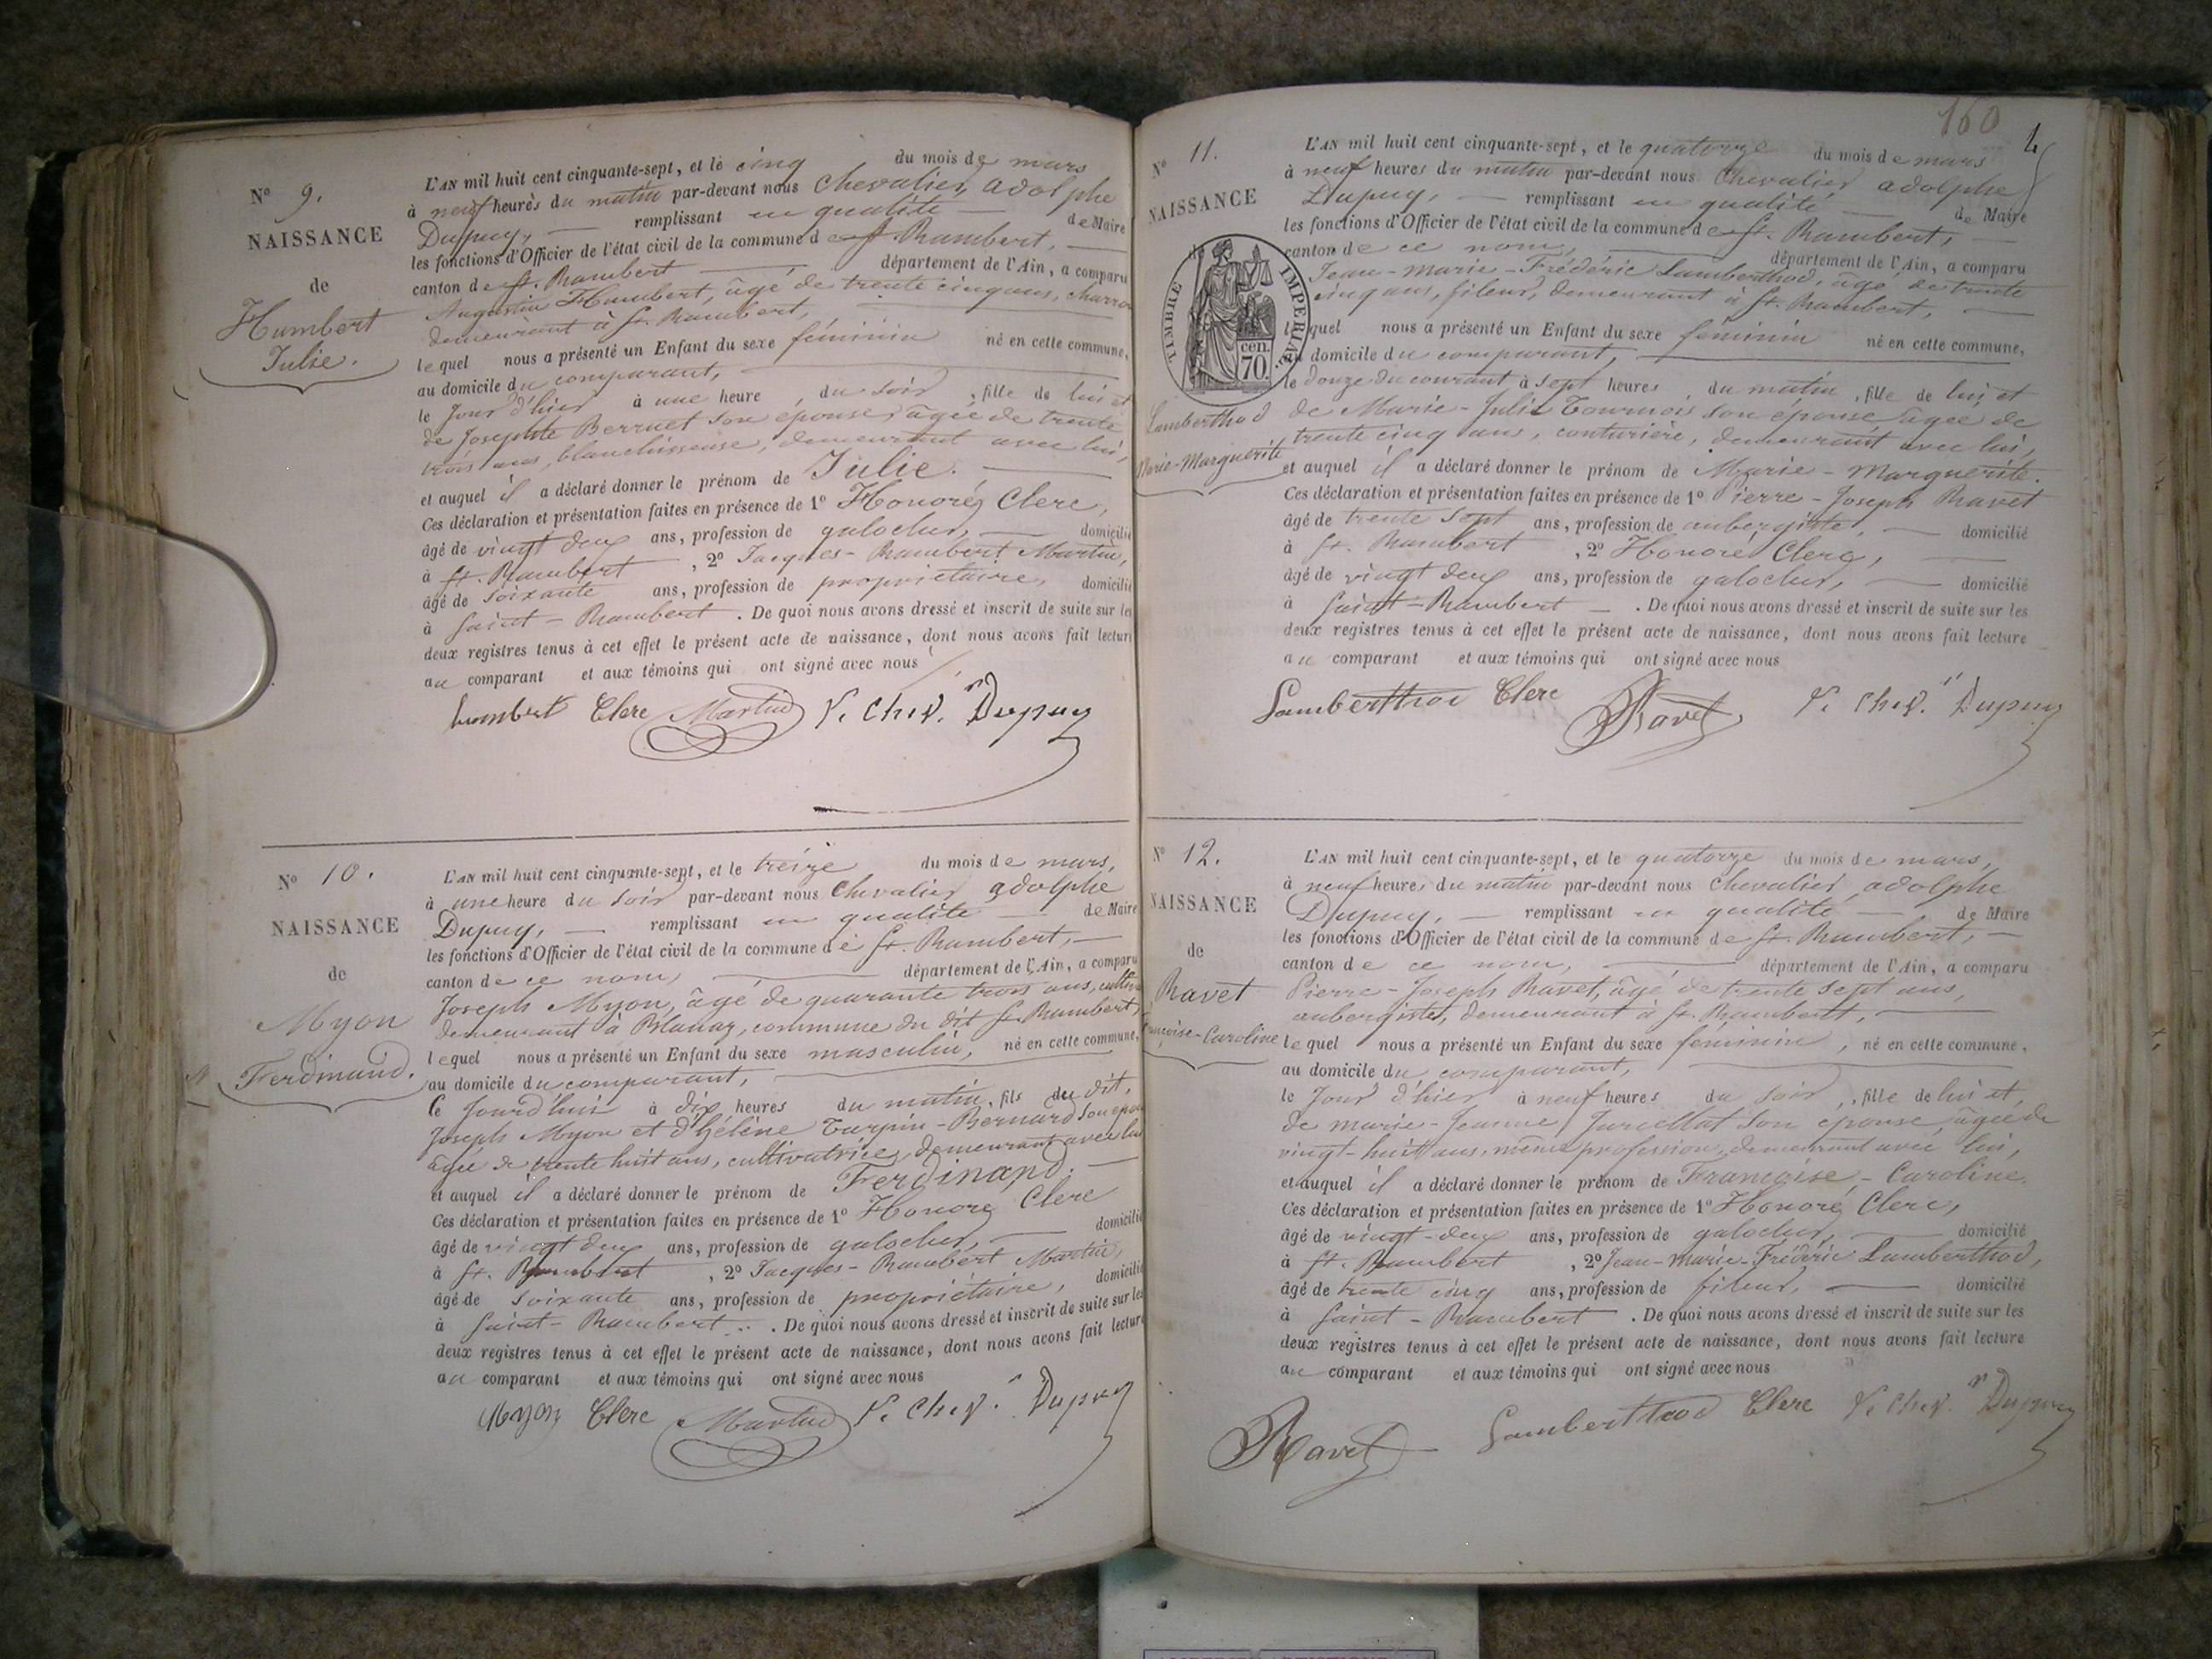 N° 9.
NAISSANCE
de
Humbert
Julie.
L'AN mil huit cent cinquante-sept, et le cinq du mois de mars
à neuf heures du matin par-devant nous Chevalier, adolphe
Dupuy, remplissant en qualité de Maire
les fonctions d'Officier de l'état civil de la commune de St. Rambert,
canton de St. Rambert département de l'Ain, a comparu
Augustin Humbert, âgé de trente cinq ans, charron
demeurant à St. Rambert,
lequel nous a présenté un Enfant du sexe féminin né en cette commune,
au domicile du comparant,
le Jour d'hier à une heure, du soir, fille de lui et
de Josephte Berruet son épouse, âgée de trente
trois ans, blanchisseuse, demeurant avec lui,
et auquel il a déclaré donner le prénom de Julie.
Ces déclaration et présentation faites en présence de 1° Honoré, Clerc,
âgé de vingt deux ans, profession de galocher, domicilié
à St. Rambert, 2° Jacques-Rambert Martin,
âgé de soixante ans, profession de propriétaire, domicilié
à Saint-Rambert. De quoi nous avons dressé et inscrit de suite sur les
deux registres tenus à cet effet le présent acte de naissance, dont nous avons fait lecture
au comparant et aux témoins qui ont signé avec nous
humbert Clerc Martin V. Chev. Dupuy
N° 10.
NAISSANCE
de
Myon
Ferdinand.
L'AN mil huit cent cinquante-sept, et le treize du mois de mars,
à une heure du soir par-devant nous Chevalier adolphe
Dupuy, remplissant en qualité de Maire
les fonctions d'Officier de l'état civil de la commune de St. Rambert,
canton de ce nom, département de l'Ain, a comparu
Joseph Myon, âgé de quarante trois ans,
demeurant à Blanaz, commune du dit St. Rambert,
lequel nous a présenté un Enfant du sexe masculin, né en cette commune,
au domicile du comparant,
le Jourd'hui à dix heures du matin, fils du dit,
Joseph Myon et d'hélène Turpin-Bernard son
âgée de trente huit ans, cultivatrice, demeurant avec lui
et auquel il a déclaré donner le prénom de Ferdinand.
Ces déclaration et présentation faites en présence de 1° Honoré, Clerc
âgé de vingt deux ans, profession de galocher, domicilié
à St. Rambert, 2° Jacques-Rambert Martin,
âgé de soixante ans, profession de propriétaire, domicilié
à Saint-Rambert. De quoi nous avons dressé et inscrit de suite sur les
deux registres tenus à cet effet le présent acte de naissance, dont nous avons fait lecture
au comparant et aux témoins qui ont signé avec nous
Myon Clerc Martin V. Chev. Dupuy
160
4
N° 11.
NAISSANCE
de
TIMBRE IMPÉRIAL
70. cen.
Lamberthod
Marie-Marguerite
L'AN mil huit cent cinquante-sept, et le quatorze du mois de mars
à neuf heures du matin par-devant nous Chevalier adolphe
Dupuy, remplissant en qualité de Maire
les fonctions d'Officier de l'état civil de la commune de St. Rambert,
canton de ce nom, département de l'Ain, a comparu
Jean-marie-Frédéric Lamberthod, âgé de trente
cinq ans, fileur, demeurant à St. Rambert,
lequel nous a présenté un Enfant du sexe féminin né en cette commune,
au domicile du comparant,
le douze du courant à sept heures du matin, fille de lui et
de Marie-Julie Tournois son épouse âgée de
trente cinq ans, couturière, demeurant avec lui,
et auquel il a déclaré donner le prénom de Marie-Marguerite.
Ces déclaration et présentation faites en présence de 1° Pierre-Joseph Ravet
âgé de trente sept ans, profession de aubergiste, domicilié
à St. Rambert, 2° Honoré Clerc,
âgé de vingt deux ans, profession de galocher, domicilié
à Saint-Rambert. De quoi nous avons dressé et inscrit de suite sur les
deux registres tenus à cet effet le présent acte de naissance, dont nous avons fait lecture
au comparant et aux témoins qui ont signé avec nous
Lamberthod Clerc Ravet V. Chev. Dupuy
N° 12.
NAISSANCE
de
Ravet
Françoise-Caroline
L'AN mil huit cent cinquante-sept, et le quatorze du mois de mars,
à neuf heures du matin par-devant nous Chevalier adolphe
Dupuy, remplissant en qualité de Maire
les fonctions d'Officier de l'état civil de la commune de St. Rambert,
canton de ce nom, département de l'Ain, a comparu
Pierre-Joseph Ravet, âgé de trente sept ans,
aubergiste, demeurant à St. Rambert,
lequel nous a présenté un Enfant du sexe féminin, né en cette commune,
au domicile du comparant,
le Jour d'hier à neuf heures du soir, fille de lui et,
de marie-Jeanne Juvellat son épouse, âgée de
vingt-huit ans, même profession, demeurant avec lui,
et auquel il a déclaré donner le prénom de Françoise-Caroline.
Ces déclaration et présentation faites en présence de 1° Honoré Clerc,
âgé de vingt-deux ans, profession de galocher, domicilié
à St. Rambert, 2° Jean-marie-Frédéric Lamberthod,
âgé de trente cinq ans, profession de fileur, domicilié
à Saint-Rambert. De quoi nous avons dressé et inscrit de suite sur les
deux registres tenus à cet effet le présent acte de naissance, dont nous avons fait lecture
au comparant et aux témoins qui ont signé avec nous
Ravet Lamberthod Clerc V. Chev. Dupuy